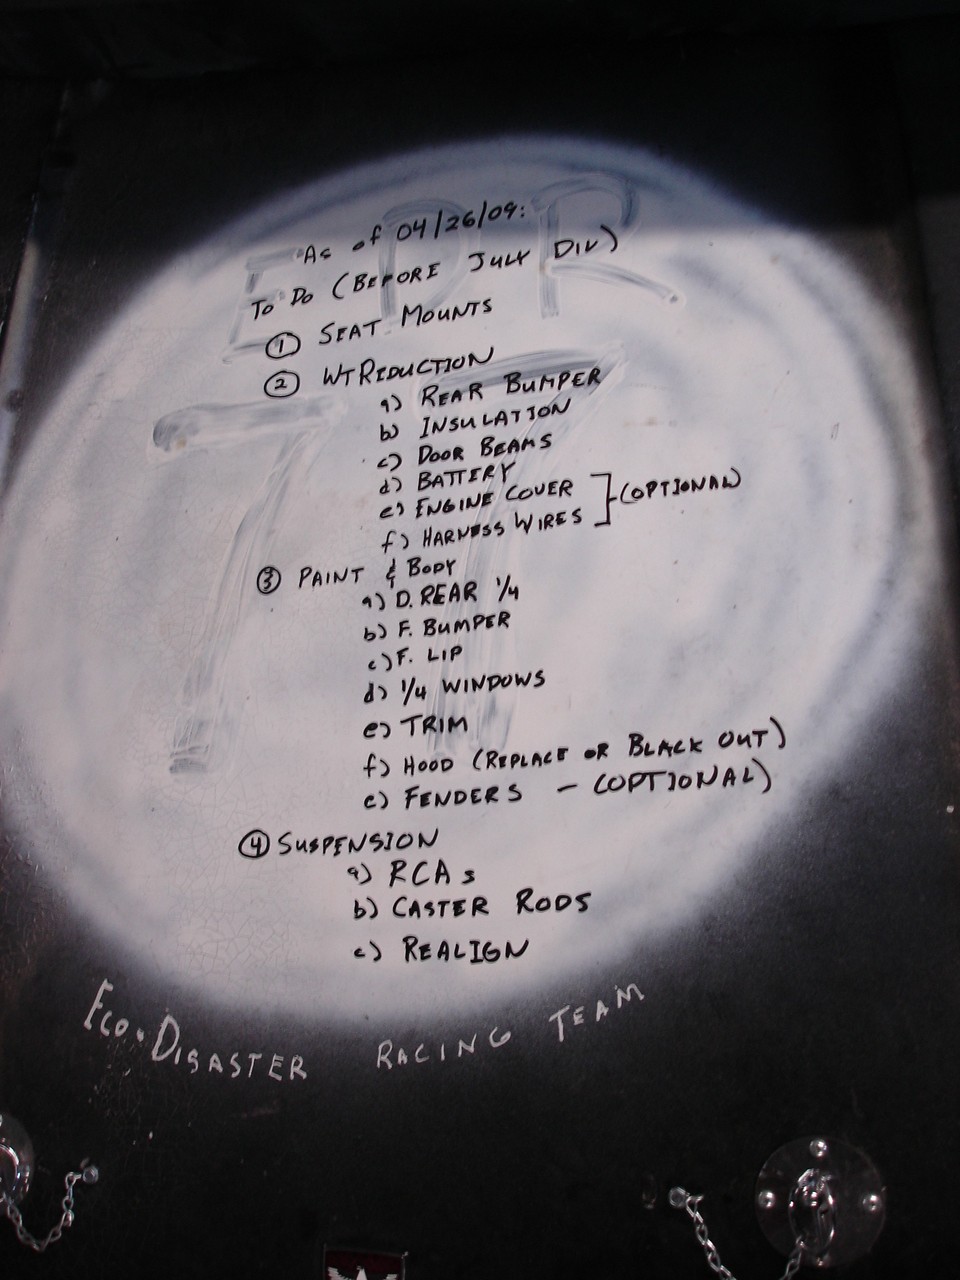 EDR
77
As of 04/26/09:
To Do (BEFORE JULY DIV)
① SEAT MOUNTS
② WT REDUCTION
a) REAR BUMPER
b) INSULATION
c) DOOR BEAMS
d) BATTERY
e) ENGINE COVER
f) HARNESS WIRES ] (OPTIONAL)
③ PAINT & BODY
a) D. REAR 1/4
b) F. BUMPER
c) F. LIP
d) 1/4 WINDOWS
e) TRIM
f) HOOD (REPLACE OR BLACK OUT)
e) FENDERS - (OPTIONAL)
④ SUSPENSION
a) RCAs
b) CASTER RODS
c) REALIGN
ECO-DISASTER RACING TEAM